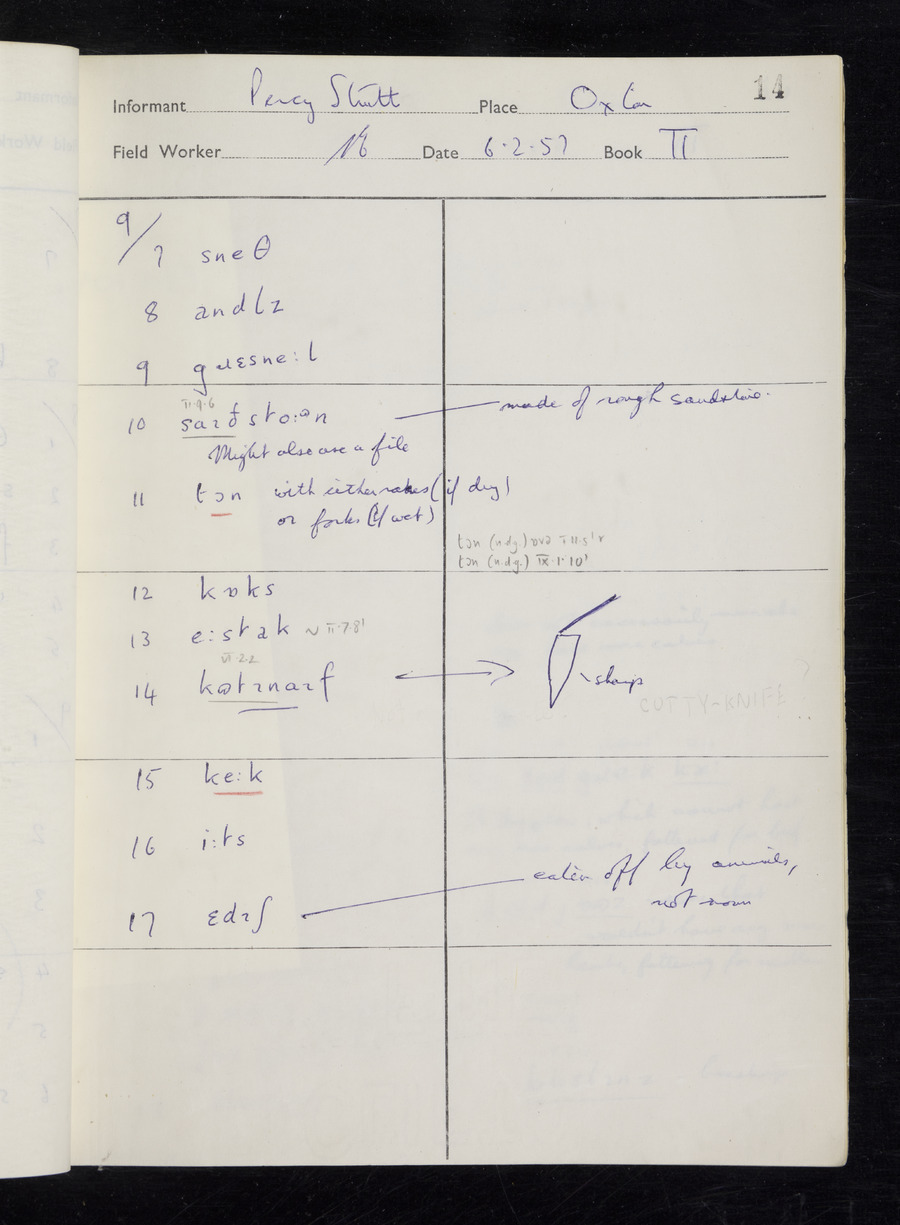 14
Informant Percy Strutt Place Oxton
Field Worker Date 6.2.57 Book II
9/7 sneθ
8 andlz
9 gɹɛsne:l
II.9.6
10 sto:ən made of rough sandstone.
Might also use a file
11 tɔn with either rakes (if dry)
or forks (if wet)
tɔn (n.dg.)
tɔn (n.dg.) IX.1.10'
12 kɒks
13 e:stak ~ II.7.8'
VI.2.2
14 sharp
CUTTY-KNIFE ?
15 ke:k
16 i:ts
17 ɛdɪʃ eaten off by animals,
not mown